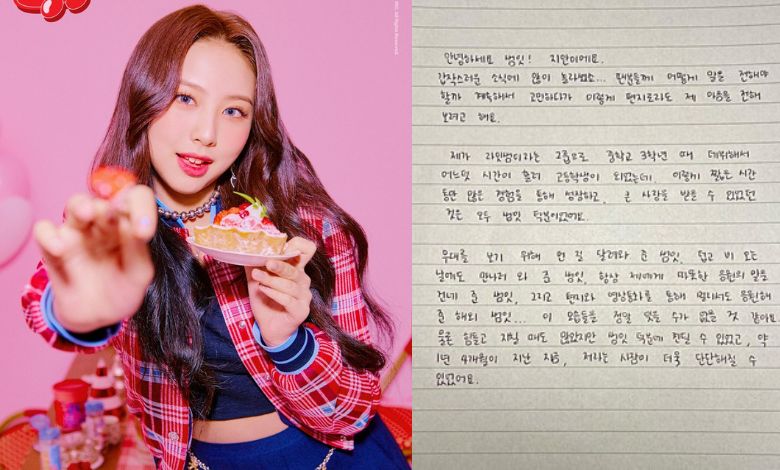 안녕하세요 범잇! 지안이에요.
갑작스러운 소식에 많이 놀라셨죠... 팬분들께 어떻게 말을 전해야
할까 계속해서 고민하다가 이렇게 편지로라도 제 마음을 전해
보려고 해요.
제가 라잇썸이라는 그룹으로 중학교 3학년 때 데뷔해서
어느덧 시간이 흘러 고등학생이 되었는데, 이렇게 짧은 시간
동안 많은 경험을 통해 성장하고, 큰 사랑을 받을 수 있었던
것은 모두 범잇 덕분이었어요.
무대를 보기 위해 먼 길 달려와 준 범잇, 덥고 비 오는
날에도 만나러 와 준 범잇, 항상 제에게 따뜻한 응원의 말을
건네 준 범잇, 그리고 편지와 영상통화를 통해 멀리서도 응원해
준 해외 범잇... 이 모습들을 정말 잊을 수가 없을 것 같아요
물론 힘들고 지칠 때도 많았지만 범잇 덕분에 견딜 수 있었고, 약
1년 4개월이 지난 지금, 저라는 사람이 더욱 단단해질 수
있었어요.